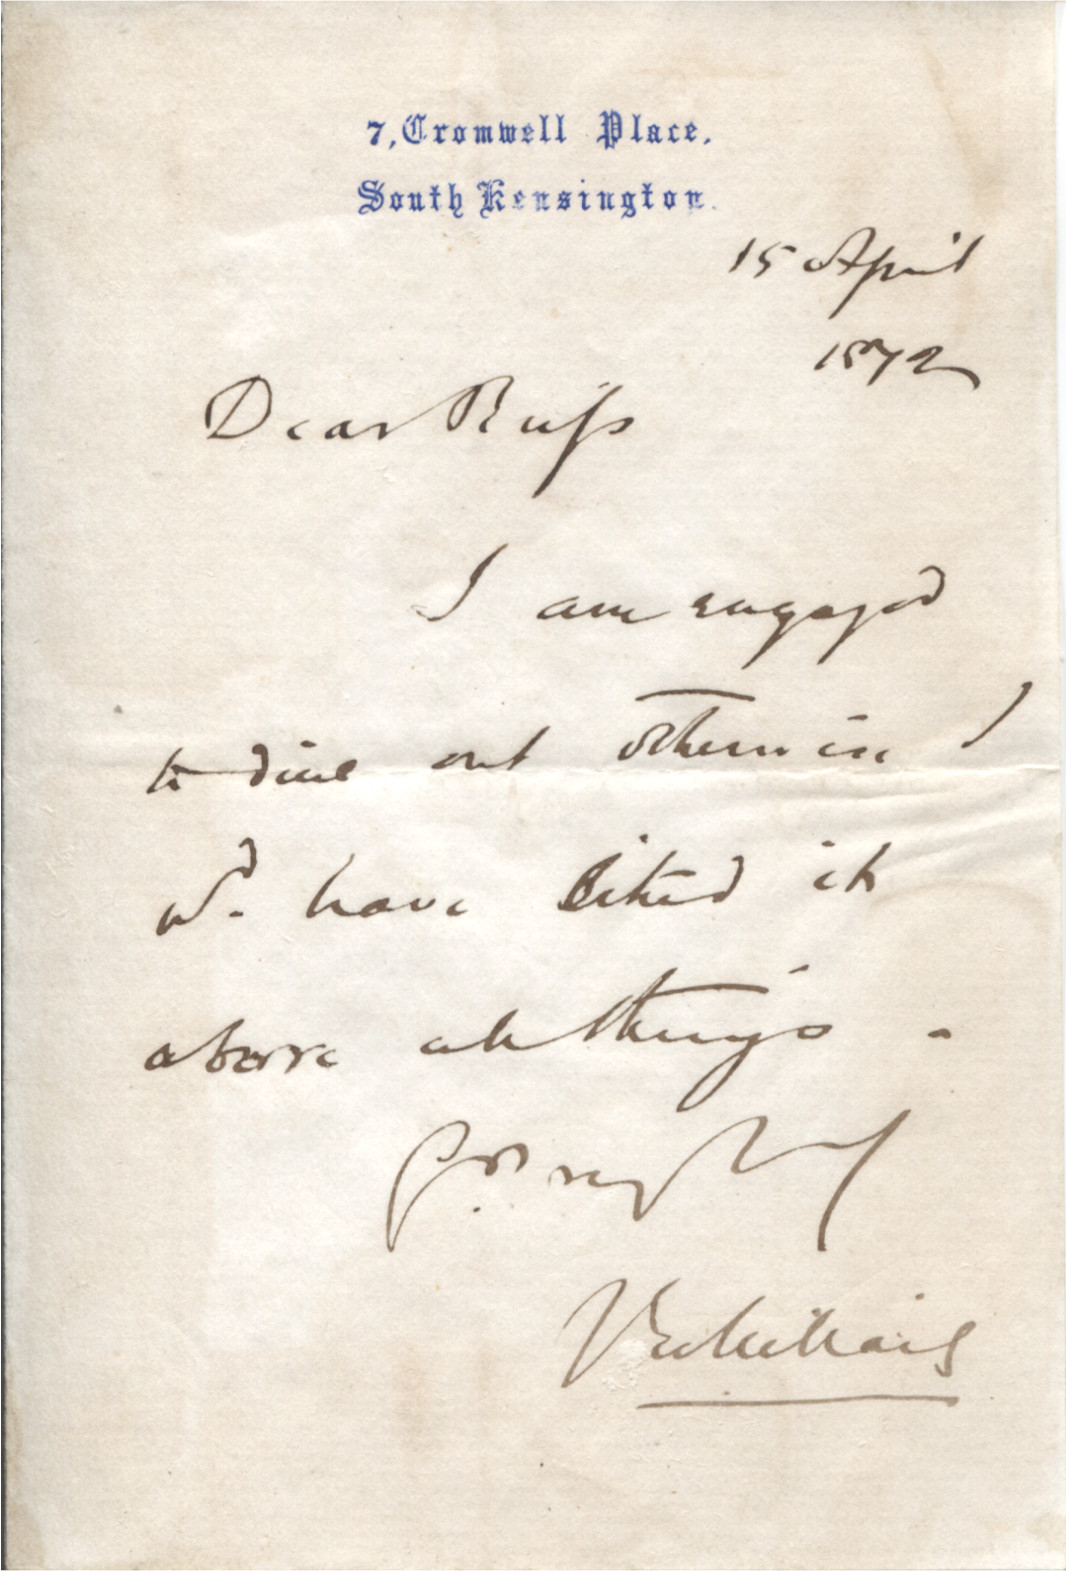 7, Cromwell Place.
South Kensington.
15 April
1872
Dear Russ
I am engaged
to dine out otherwise I
wd. have liked it
above all things.
Yrs. very truly
J E Millais